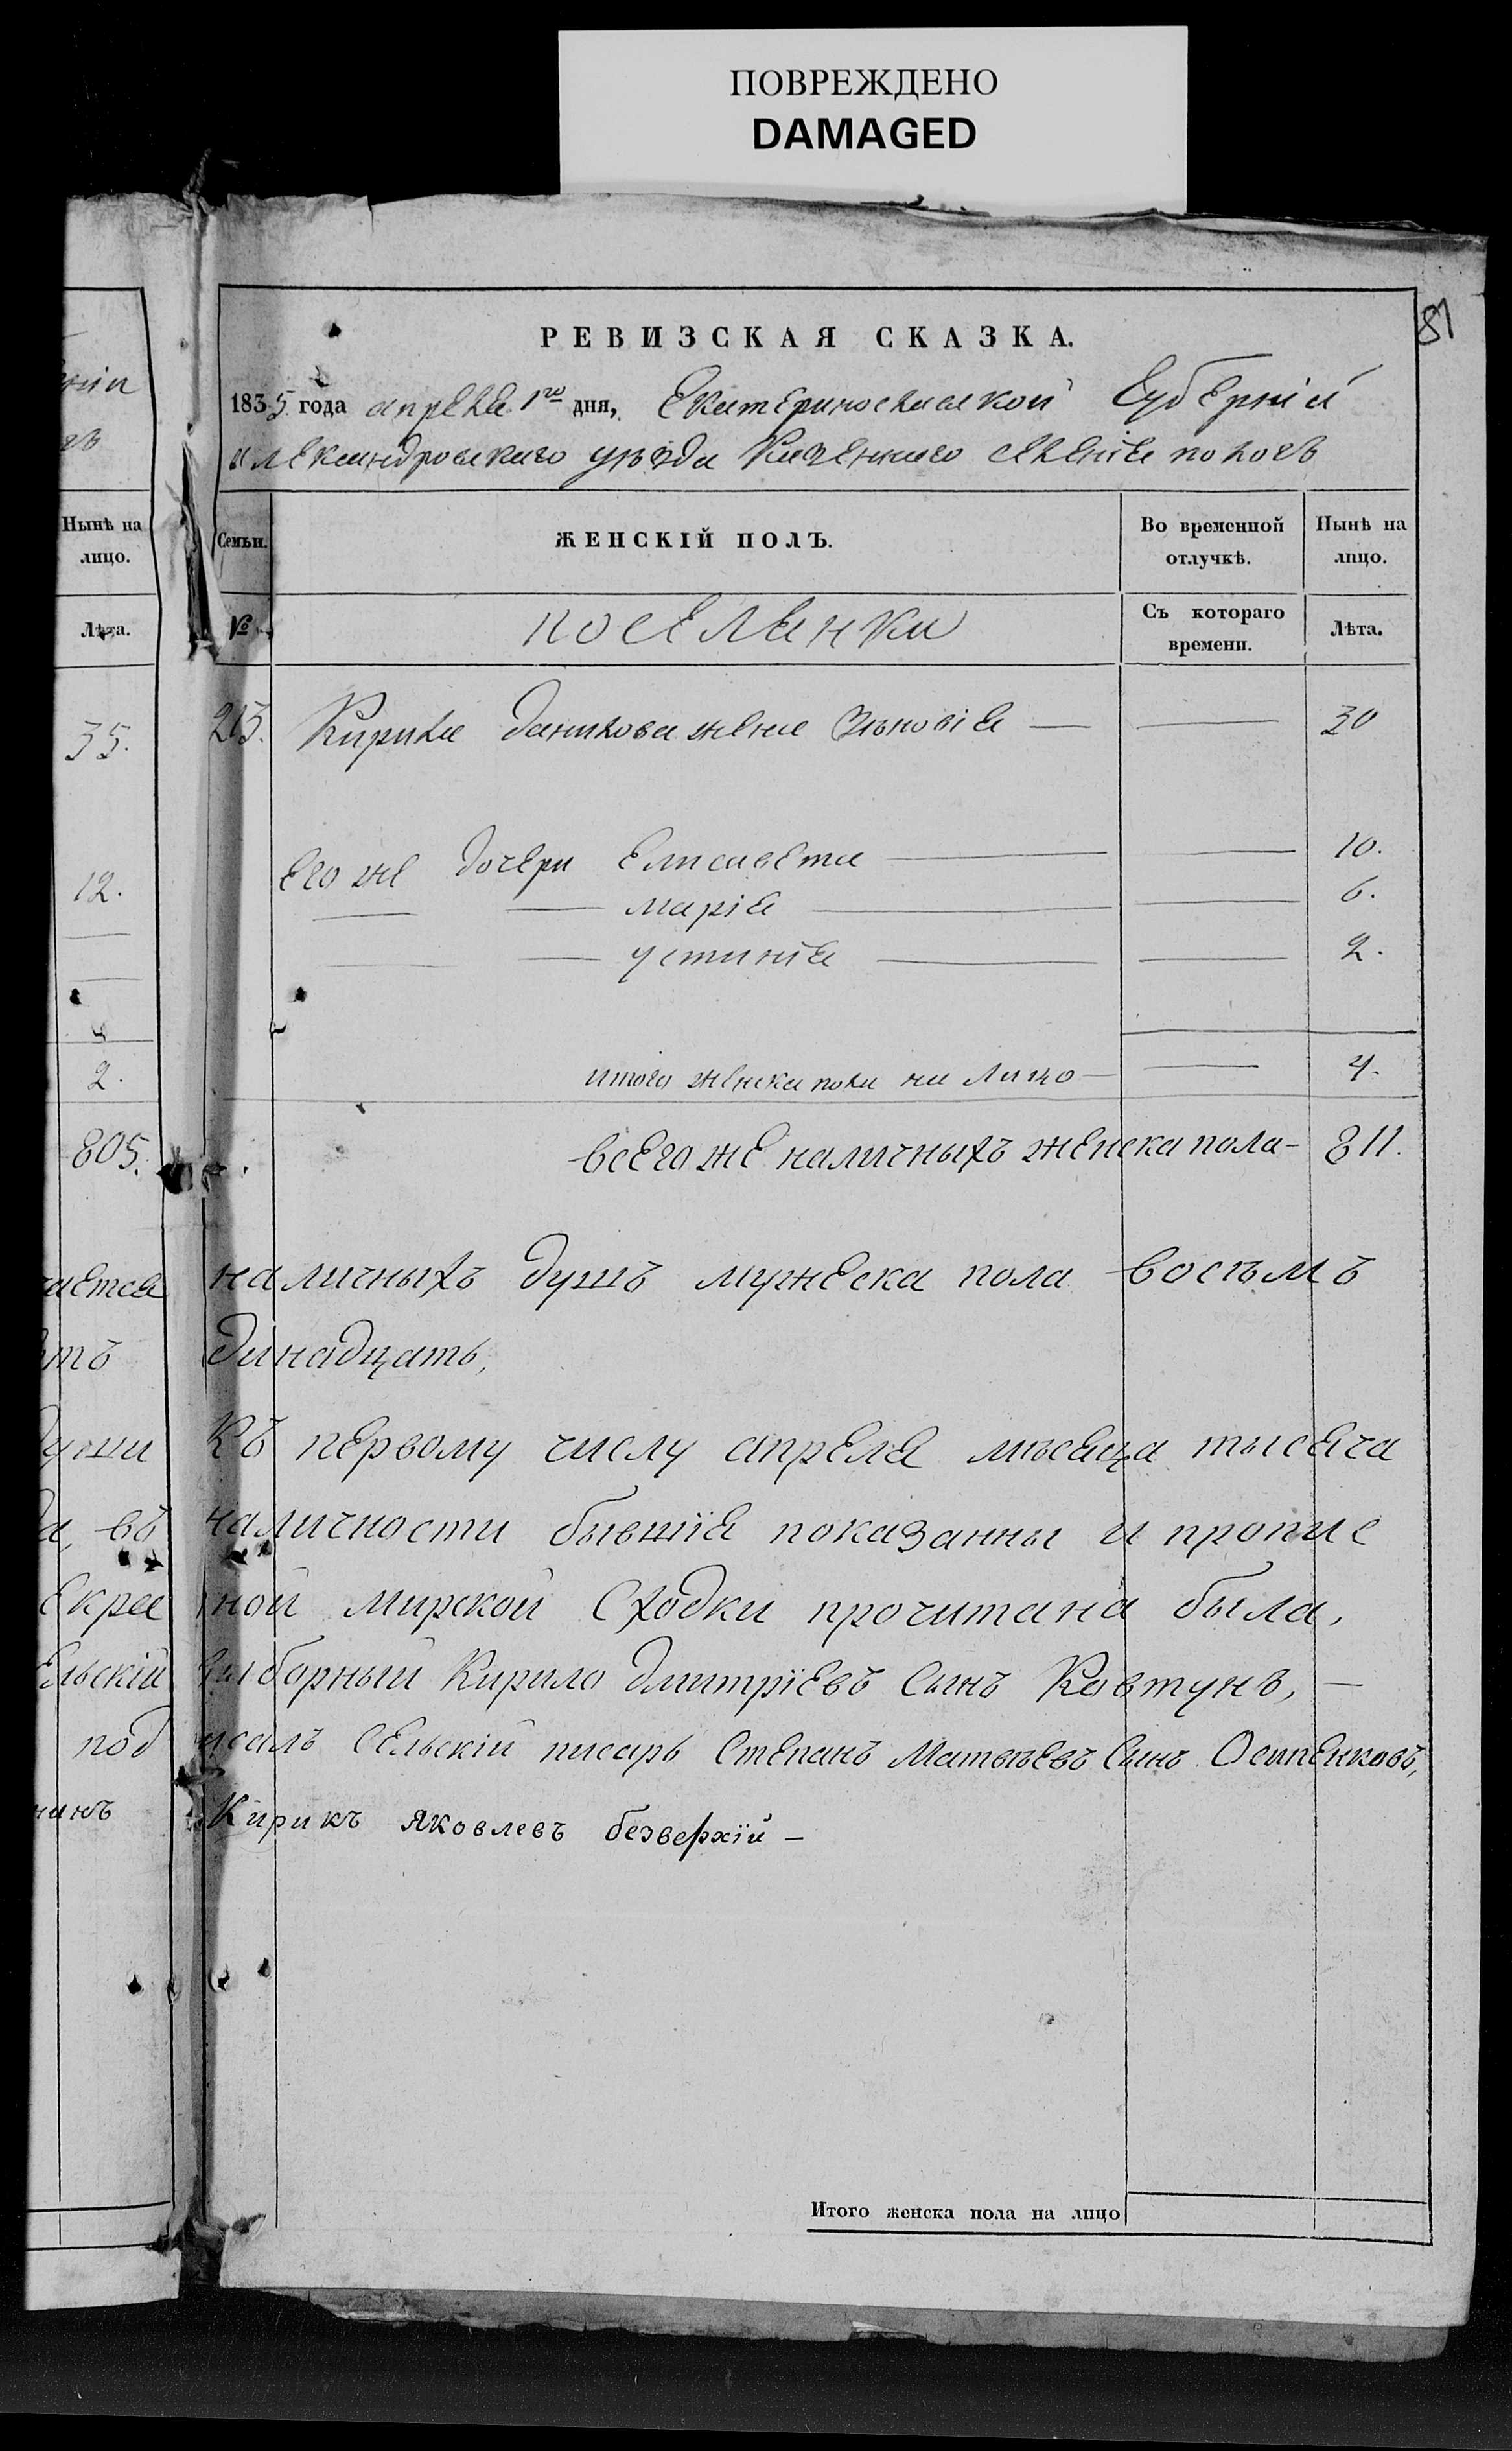 ПОВРЕЖДЕНО
DAMAGED
81
РЕВИЗСКАЯ СКАЗКА.
1835 года апреля 1го дня, Екатеринославской Губерніи
александровскаго уѣзда Казеннаго селенія пологъ
Нынѣ на лицо.
Лѣта.
35.
12.
2.
805.
Семьи.
ЖЕНСКІЙ ПОЛЪ.
Во временной отлучкѣ.
Нынѣ на лицо.
№
поселянки
Съ котораго времени.
Лѣта.
213. Кирила данилова жена Зѣновія — — 30
Его же дочери Елисавета — — 10.
— — марія — — 6.
— — устинія — — 2.
итого женска пола на лицо — — 4.
всего же наличныхъ женска пола — 811.
наличныхъ душъ мужеска пола восъмъ
динадцать,
души Къ первому числу апреля мѣсяца тысяча
въ наличности бывшія показанны и пропис
ной мирской Сходки прочитана была,
ельскій выборный Кирило дмитріевъ Сынъ Ковтунъ, —
под исалъ Сельскій писарь Степанъ Матвѣевъ Сынъ Осипенковъ,
Кирикъ Яковлевъ безверхій —
Итого женска пола на лицо